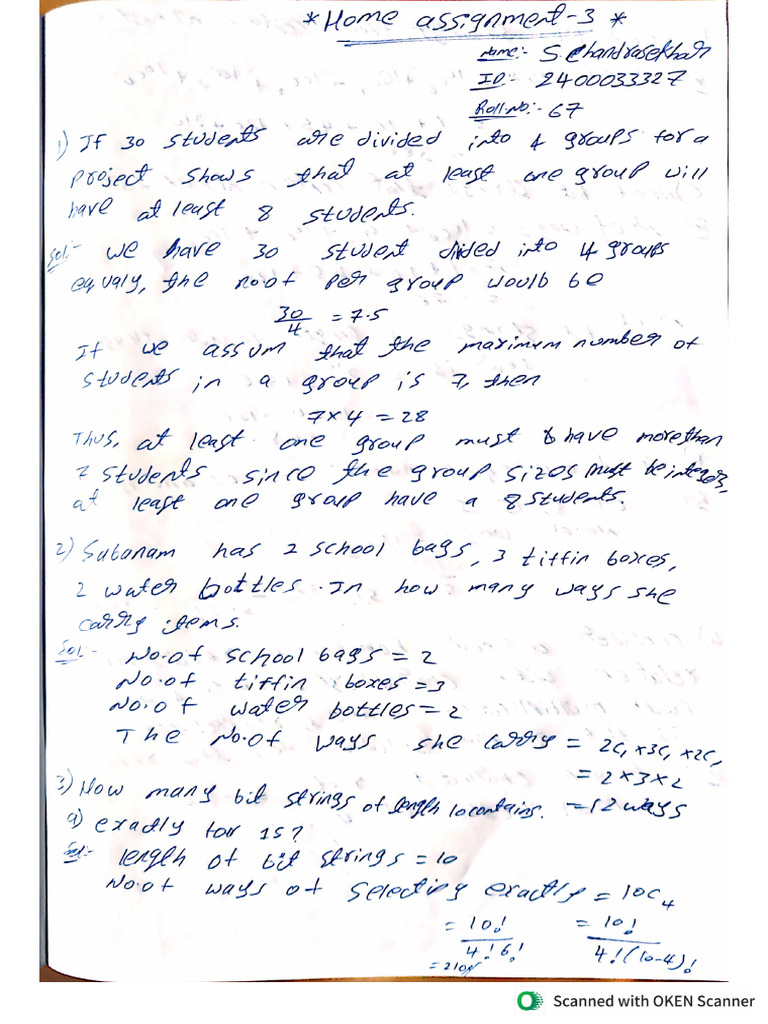 * Home assignment-3 *
Name:- S. Chandrasekhar
ID:- 2400033327
Roll.No:- 67
1) If 30 students are divided into 4 groups for a
project shows that at least one group will
have at least 8 students.
Sol:- we have 30 student divided into 4 groups
equaly, the no.of per group would be
30/4 = 7.5
If we assum that the maximum number of
students in a group is 7, then
7 x 4 = 28
Thus, at least one group must have more than
7 students since the group sizes must be integers,
at least one group have a 8 students.
2) Subanam has 2 school bags, 3 tiffin boxes,
2 water bottles. In how many ways she
carry items.
Sol:- No.of school bags = 2
No.of tiffin boxes = 3
No.of water bottles = 2
The No.of ways she carry = 2C1 x 3C1 x 2C1
= 2 x 3 x 2
= 12 ways
3) How many bit strings of length 10 contains.
a) exactly for 1s?
Sol:- length of bit strings = 10
No.of ways of selecting exactly = 10C4
= 10!/4!(10-4)!
= 10!/4!6!
= 210
Scanned with OKEN Scanner